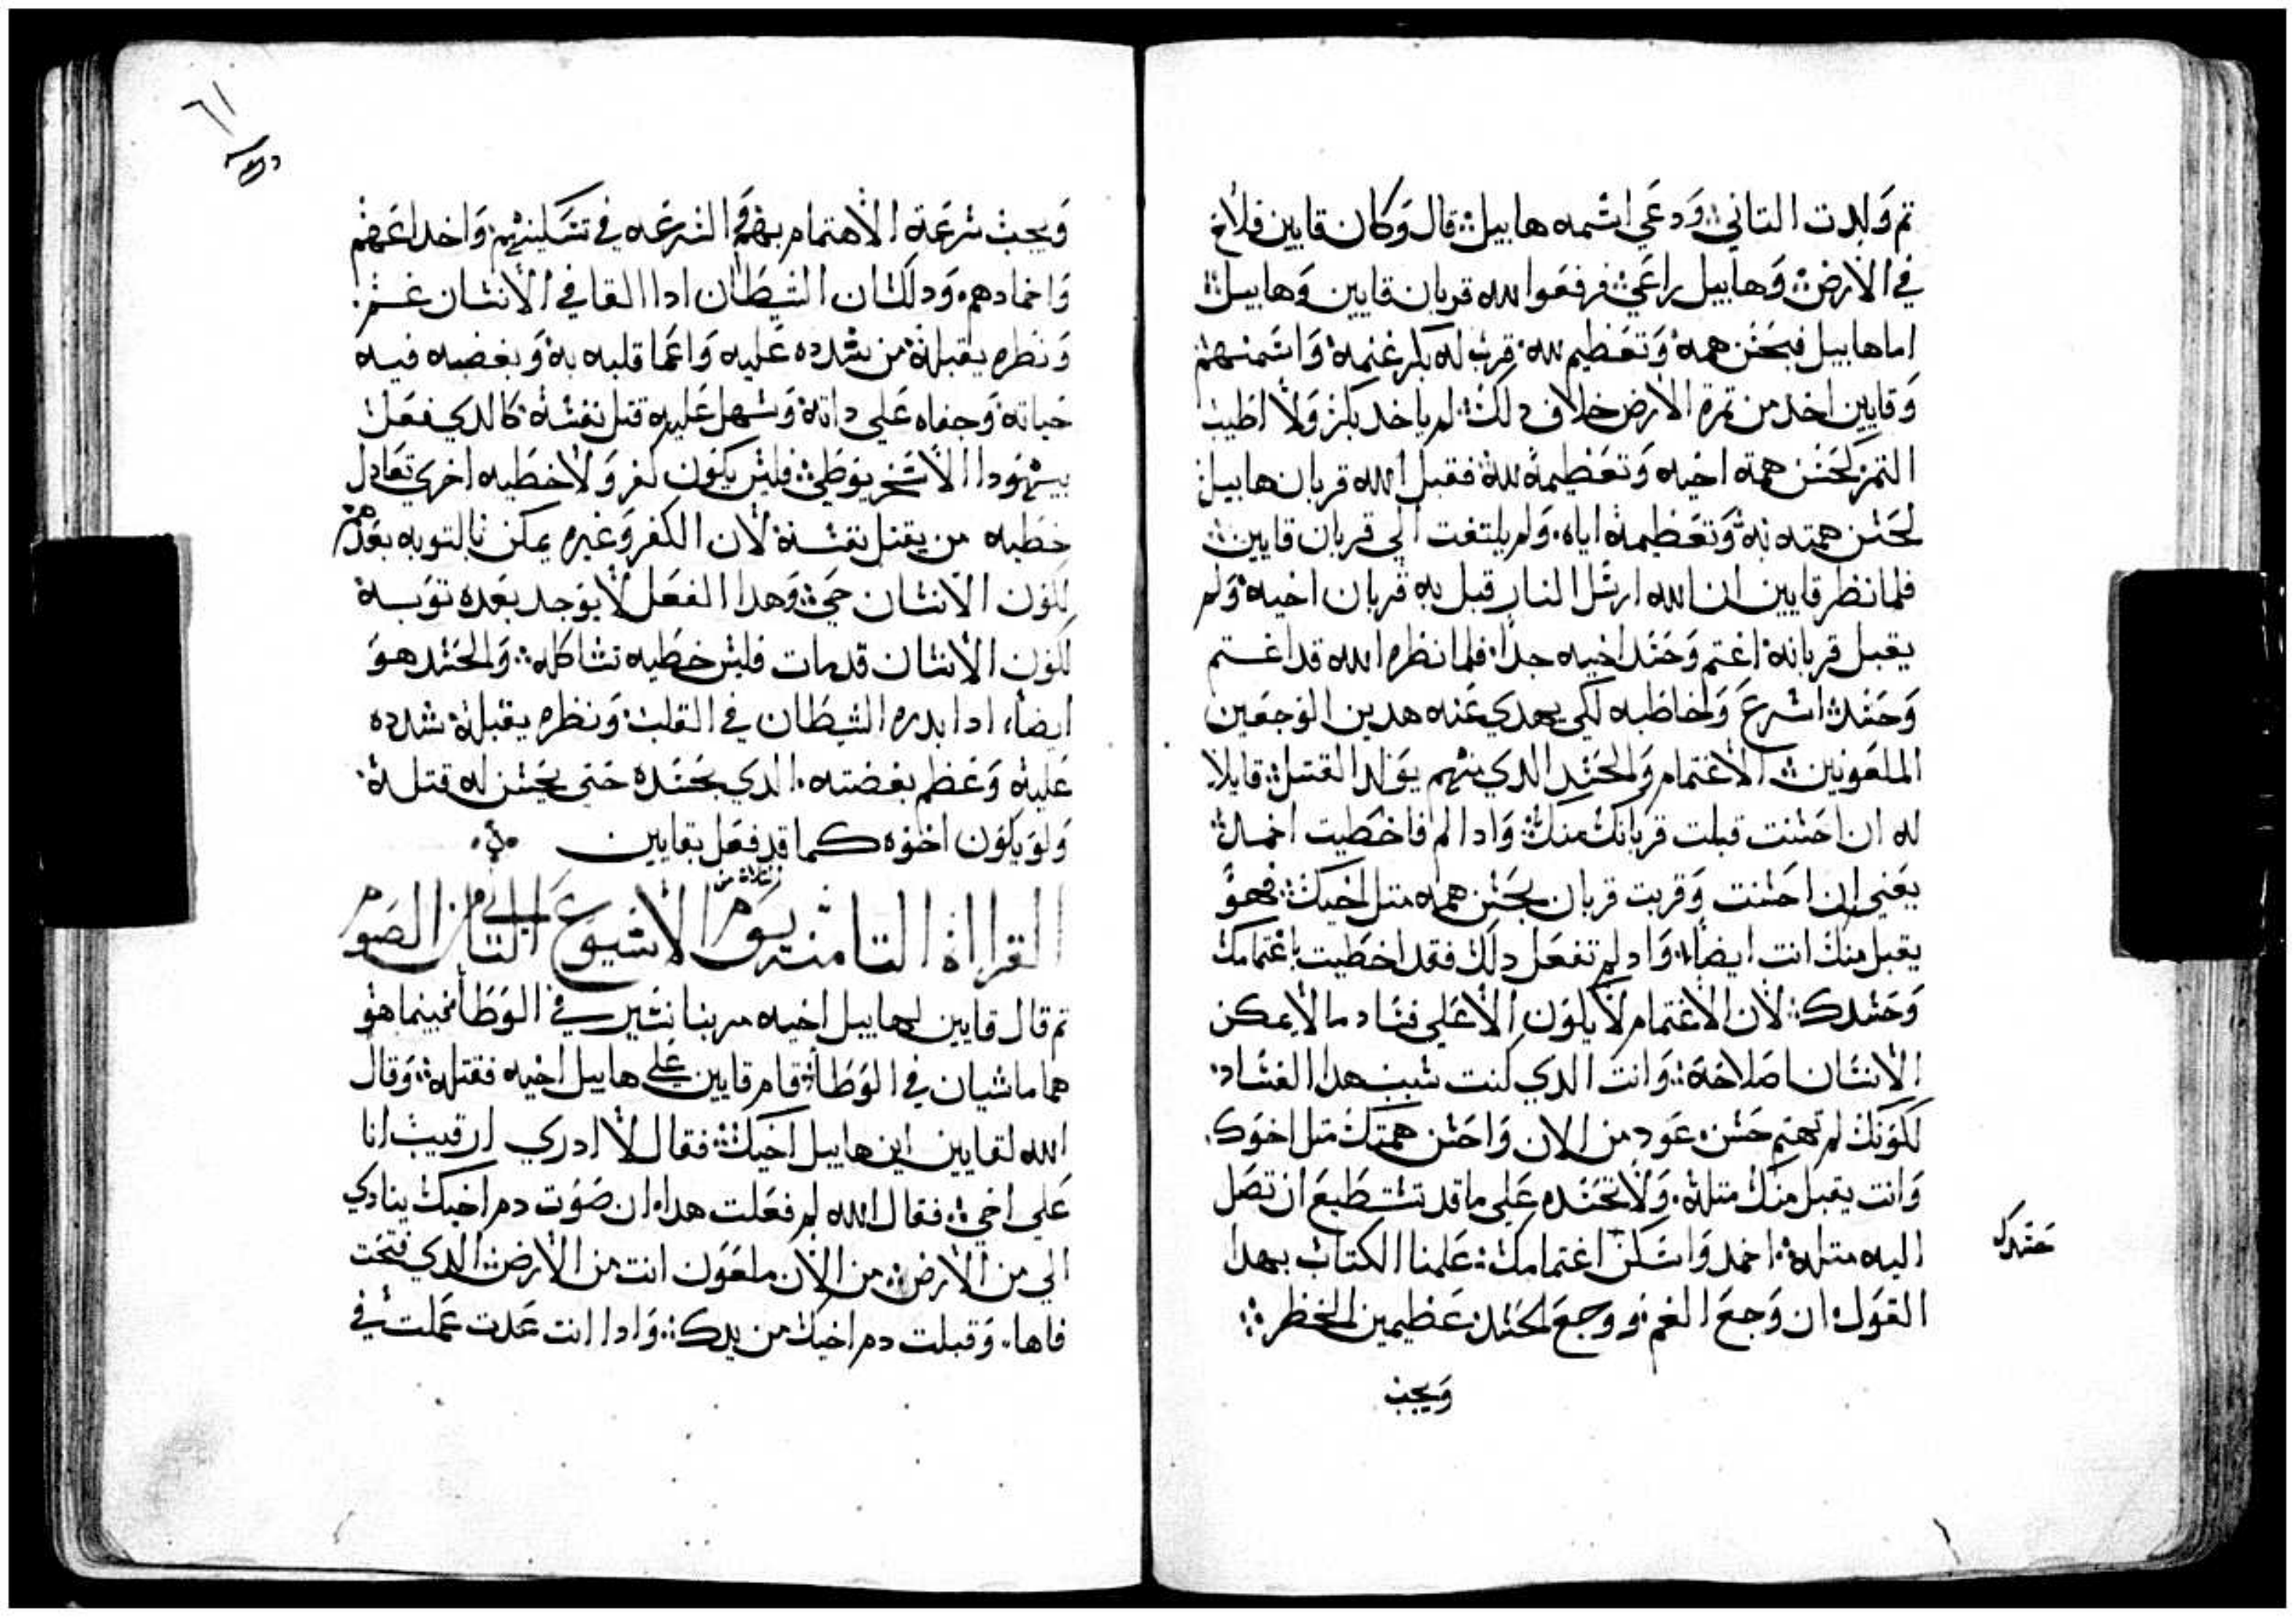 تم وَلدت التاني وَدعَي اسْمه هابيل قال وَكان قايين فلاح
في الارض وَهابيل راعَي فرفعَوا لله قربان قايين وَهابيل
اما هابيل فبحَسْن همه وَتعَظيم لله قرب له بكر غنمه وَاسْمنهم
وَقايين اخد من تمرة الارض خلاف دلك لم ياخد بكر وَلا اطيب
التمر لحَسْن همة اخيه وَتعَظيمه لله فقبل الله قربان هابيل
لحَسْن همته به وَتعَظيمه اياه وَلم يلتفت الي قربان قايين
فلما نظر قايين ان الله ارسْل النار قبل به قربان اخيه وَلم
يقبل قربانه اغتم وَحَسْد اخيه جدا فلما نظره الله قد اغتم
وَحَسْد اسْرعَ وَخاطبه لكي يهدي عَنه هدين الوَجعَين
الملعَونين الاغتمام وَالحَسْد الدي منهم يوَلد القتل قايلا
له ان احَسْنت قبلت قربانك منك وَادا لم فاخطيت اخمد
يعَني ان احَسْنت وَقربت قربان بحَسْن همه متل اخيك فهوَ
يقبل منك انت ايضا وَاد لم تفعَل دلك فقد اخطيت باغتمامك
وَحَسْدك لان الاغتمام لا يكوَن الا عَلي فسْاد ما لا يمكن
الانسْان اصلاحَه وَانت الدي كنت سْبب هدا الفسْاد
لكوَنك لم تهتم حَسْن عوَد من الان وَاحَسْن همتك متل اخوَك
وَانت يقبل منك متله وَلا تحَسْده عَلي ما قد تسْتطيعَ ان تصَل
اليه متله اخمد وَاسْكن اغتمامك عَلمنا الكتاب بهدا
حَسْدك
القوَل ان وَجعَ الغم وَوجعَ الحَسْد عَظيمين الخطر
وَيجب
٦١
وَيجب سْرعَة الاهتمام بهم وَالسْرعَه في تسْكينهم وَاخداعَهم
وَاخمادهم وَدلك ان الشيطان ادا القا في الانسْان غم
وَنظره يقبله من شدده عَليه وَاعَما قلبه به وَبغضه فيه
حَياته وَجفاه عَلي داته وَسْهل عَليه قتل نفسْه كالدي فعَل
بيهوَدا الاسْخريوَطي فليسْ يكوَن كفر وَلا خطيه اخرَي تعَادل
خطيه من يقتل نفسْه لان الكفر وَغيره يمكن بالتوبه بعَدهم
لكوَن الانسْان حَي وَهدا الفعَل لا يوَجد بعَده توَبه
لكوَن الانسْان قد مات فليسْ خطيه تشاكله وَالحَسْد هوَ
ايضا ادا بدره الشيطان في القلب وَنظره يقبله شدده
عَليه وَعَظم بغضته الدي يحَسْده حَتي يحَسْن له قتله
وَلوَ يكوَن اخوَه كما قد فعَل بقايين
القرااة التامنه يوَم الاسْبوَعَ التاني من الصوَم
تم قال قايين لهابيل اخيه مر بنا نسْير في الوَطَا فبينما هوَ
هما ماشيان في الوَطَا قام قايين عَلي هابيل اخيه فقتله وَقال
الله لقايين اين هابيل اخيك فقال لا ادري ارقيب انا
عَلي اخي فقال الله لم فعَلت هدا ان صَوَت دم اخيك ينادي
الي من الارض من الان ملعَوَن انت من الارض الدي فتحَت
فاها وَقبلت دم اخيك من يدك وَادا انت عَدت عَملت في